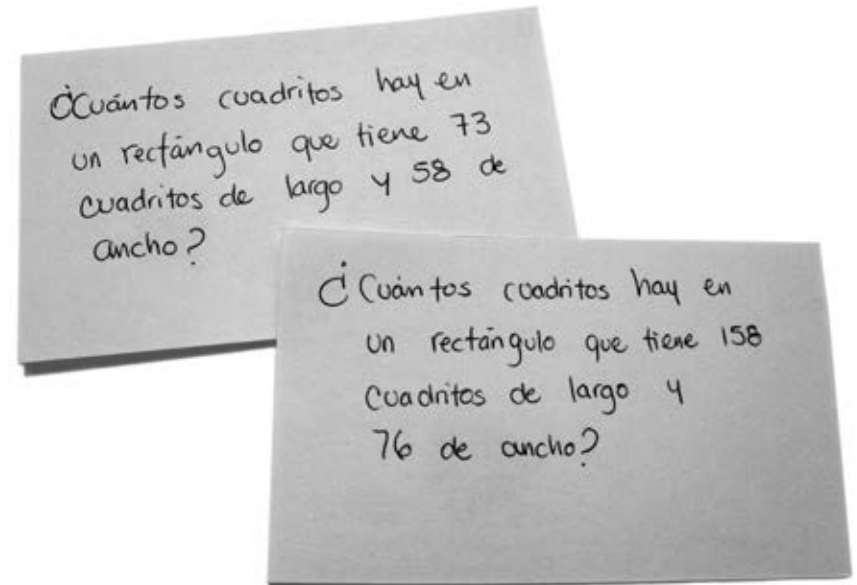 ¿Cuántos cuadritos hay en
un rectángulo que tiene 73
cuadritos de largo y 58 de
ancho?
¿Cuántos cuadritos hay en
un rectángulo que tiene 158
cuadritos de largo y
76 de ancho?